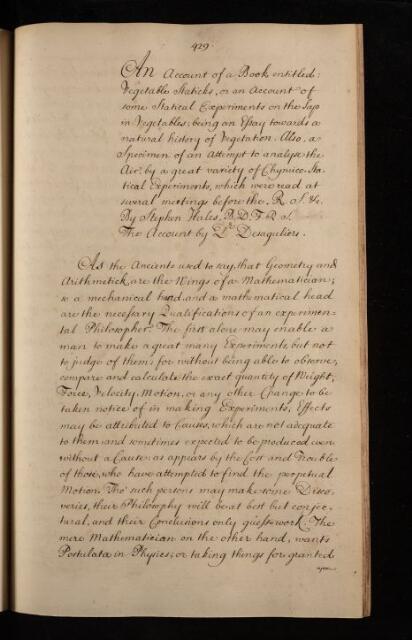 429.
An Account of a Book entitled:
Vegetable Staticks, or an Account of
some Statical Experiments on the Sap
in Vegetables: being an Essay towards a
natural history of Vegetation. Also, a
Specimen of an Attempt to analyse the
Air, by a great variety of Chymico-Sta-
tical Experiments, which were read at
several meetings before the R. S. &c.
By Stephen Hales, B. D. F. R. S.
The Account by Dr. Desaguliers.
As the Ancients used to say, that Geometry and
Arithmetick, are the Wings of a Mathematician;
so a mechanical hand, and a mathematical head
are the necessary Qualifications of an experimen-
tal Philosopher. The first alone may enable a
man to make a great many Experiments, but not
to judge of them; for without being able to observe,
compare and calculate the exact quantity of Weight,
Force, Velocity, Motion, or any other Change to be
taken notice of in making Experiments, Effects
may be attributed to Causes, which are not adequate
to them and sometimes expected to be produced even
without a Cause: as appears by the Cost and Trouble
of those, who have attempted to find the perpetual
Motion. Tho' such persons may make some Disco-
veries, their Philosophy will be at best but conjec-
tural, and their Conclusions only guess-work. The
mere Mathematician on the other hand, wants
Postulata in Physics; or taking things for granted